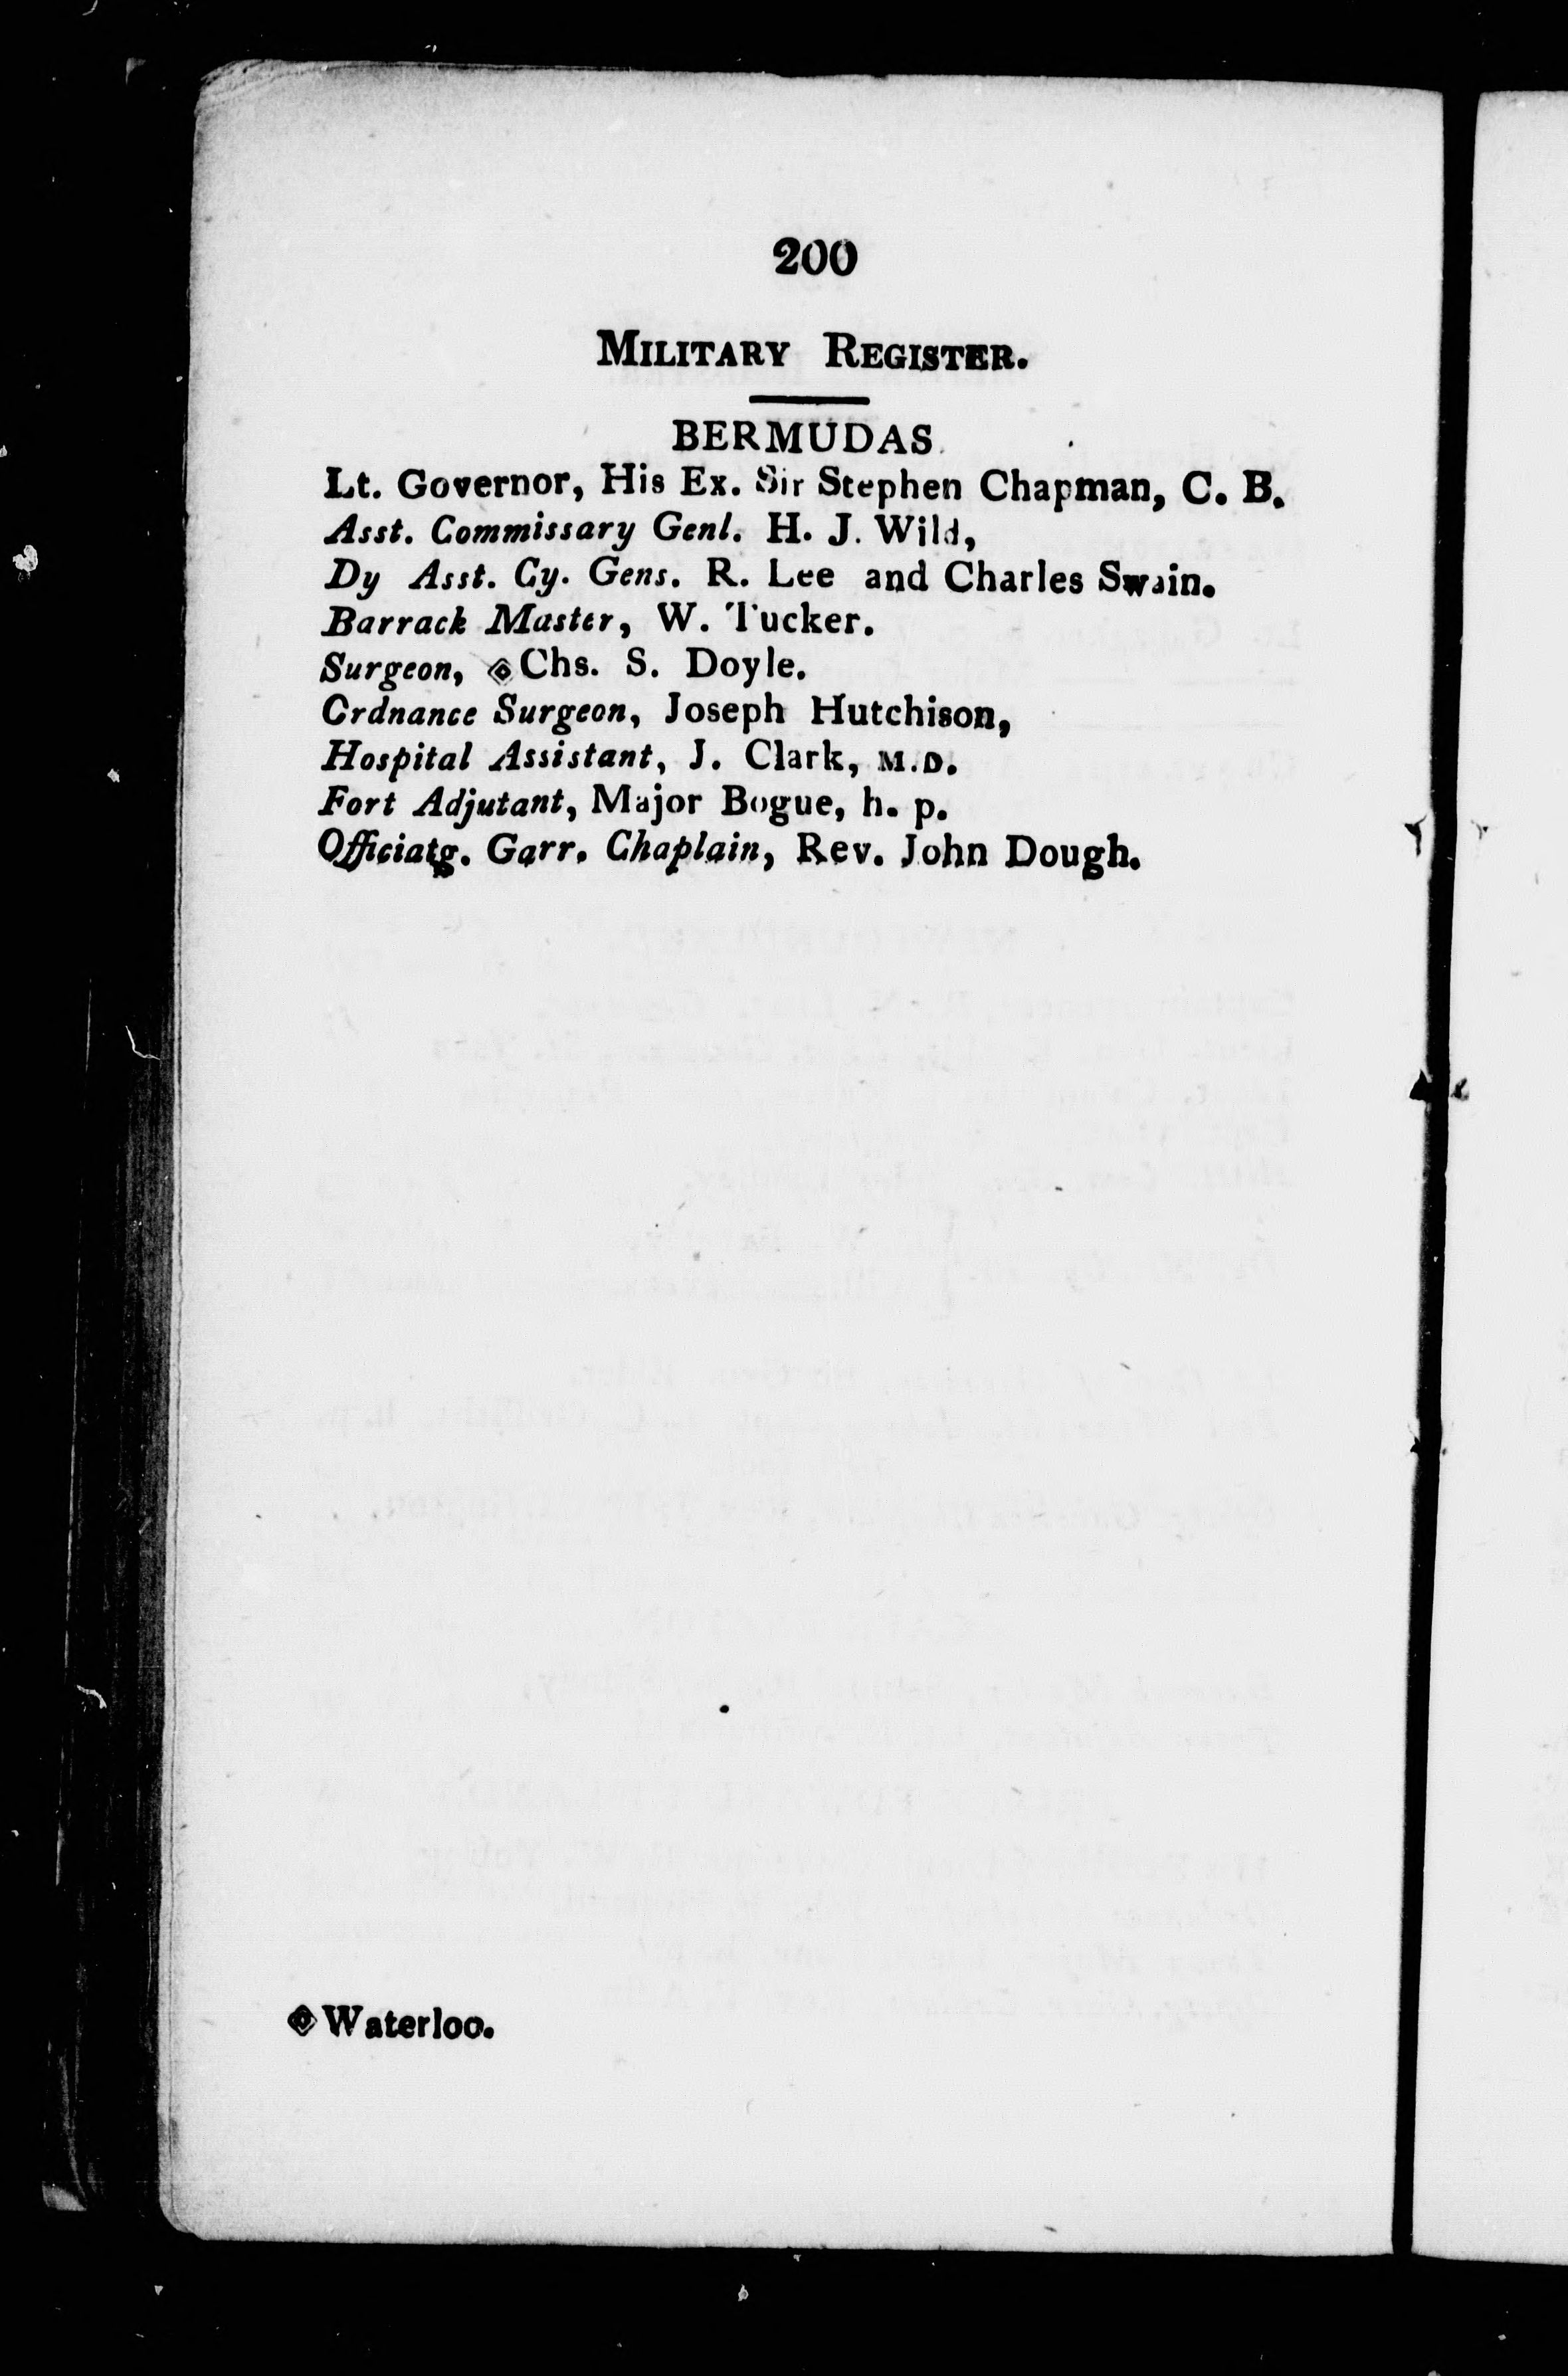 200
MILITARY REGISTER.
BERMUDAS.
Lt. Governor, His Ex. Sir Stephen Chapman, C. B.
Asst. Commissary Genl. H. J. Wild,
Dy Asst. Cy. Gens. R. Lee and Charles Swain.
Barrack Master, W. Tucker.
Surgeon, ◈Chs. S. Doyle.
Ordnance Surgeon, Joseph Hutchison,
Hospital Assistant, J. Clark, M.D.
Fort Adjutant, Major Bogue, h. p.
Officiatg. Garr. Chaplain, Rev. John Dough.
◈Waterloo.